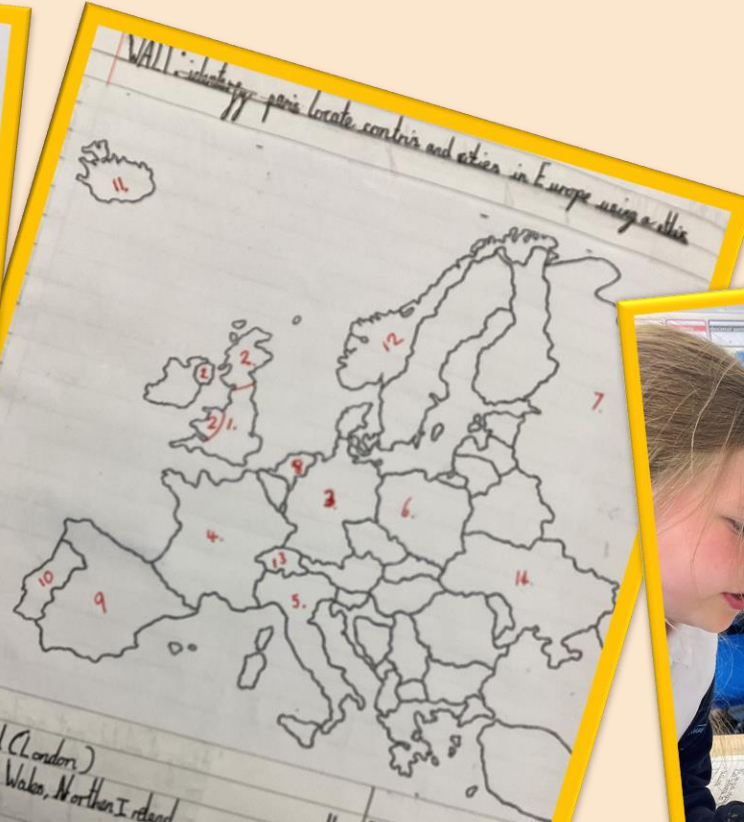 WALT: identefy paris locate contris and cities in Europe using a atlis
11.
12
2
2
7.
2 1.
8
3
6.
4.
13
14.
10
9
5.
(London)
Wales, Northen Ireland